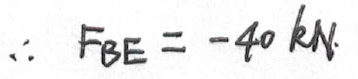 ∴ F_BE = -40 kN.